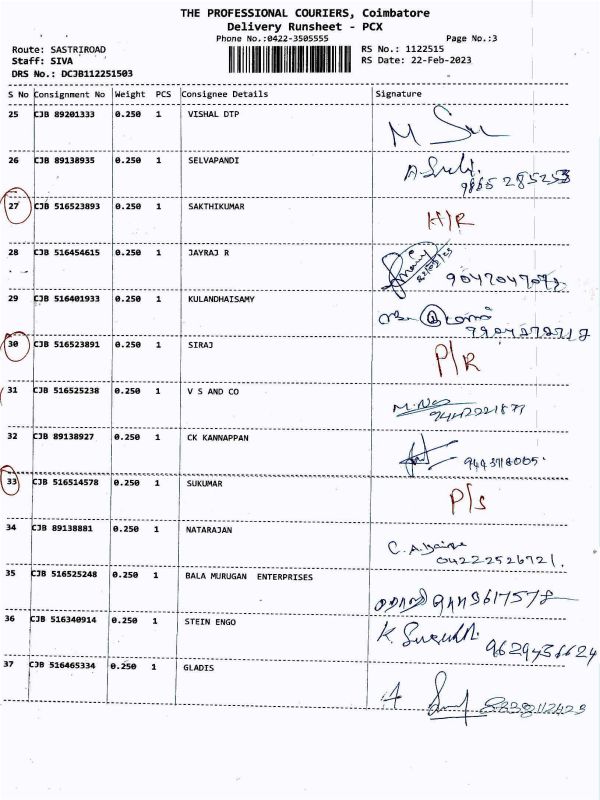 THE PROFESSIONAL COURIERS, Coimbatore
Delivery Runsheet - PCX
Phone No.:0422-3505555 Page No.:3
Route: SASTRIROAD RS No.: 1122515
Staff: SIVA RS Date: 22-Feb-2023
DRS No.: DCJB112251503
S No Consignment No Weight PCS Consignee Details Signature
25 CJB 89201333 0.250 1 VISHAL DTP
26 CJB 89138935 0.250 1 SELVAPANDI
27 CJB 516523893 0.250 1 SAKTHIKUMAR H/R
28 CJB 516454615 0.250 1 JAYRAJ R
29 CJB 516401933 0.250 1 KULANDHAISAMY
30 CJB 516523891 0.250 1 SIRAJ P/R
31 CJB 516525238 0.250 1 V S AND CO
32 CJB 89138927 0.250 1 CK KANNAPPAN
33 CJB 516514578 0.250 1 SUKUMAR P/S
34 CJB 89138881 0.250 1 NATARAJAN 04222526721.
35 CJB 516525248 0.250 1 BALA MURUGAN ENTERPRISES
36 CJB 516340914 0.250 1 STEIN ENGO
37 CJB 516465334 0.250 1 GLADIS